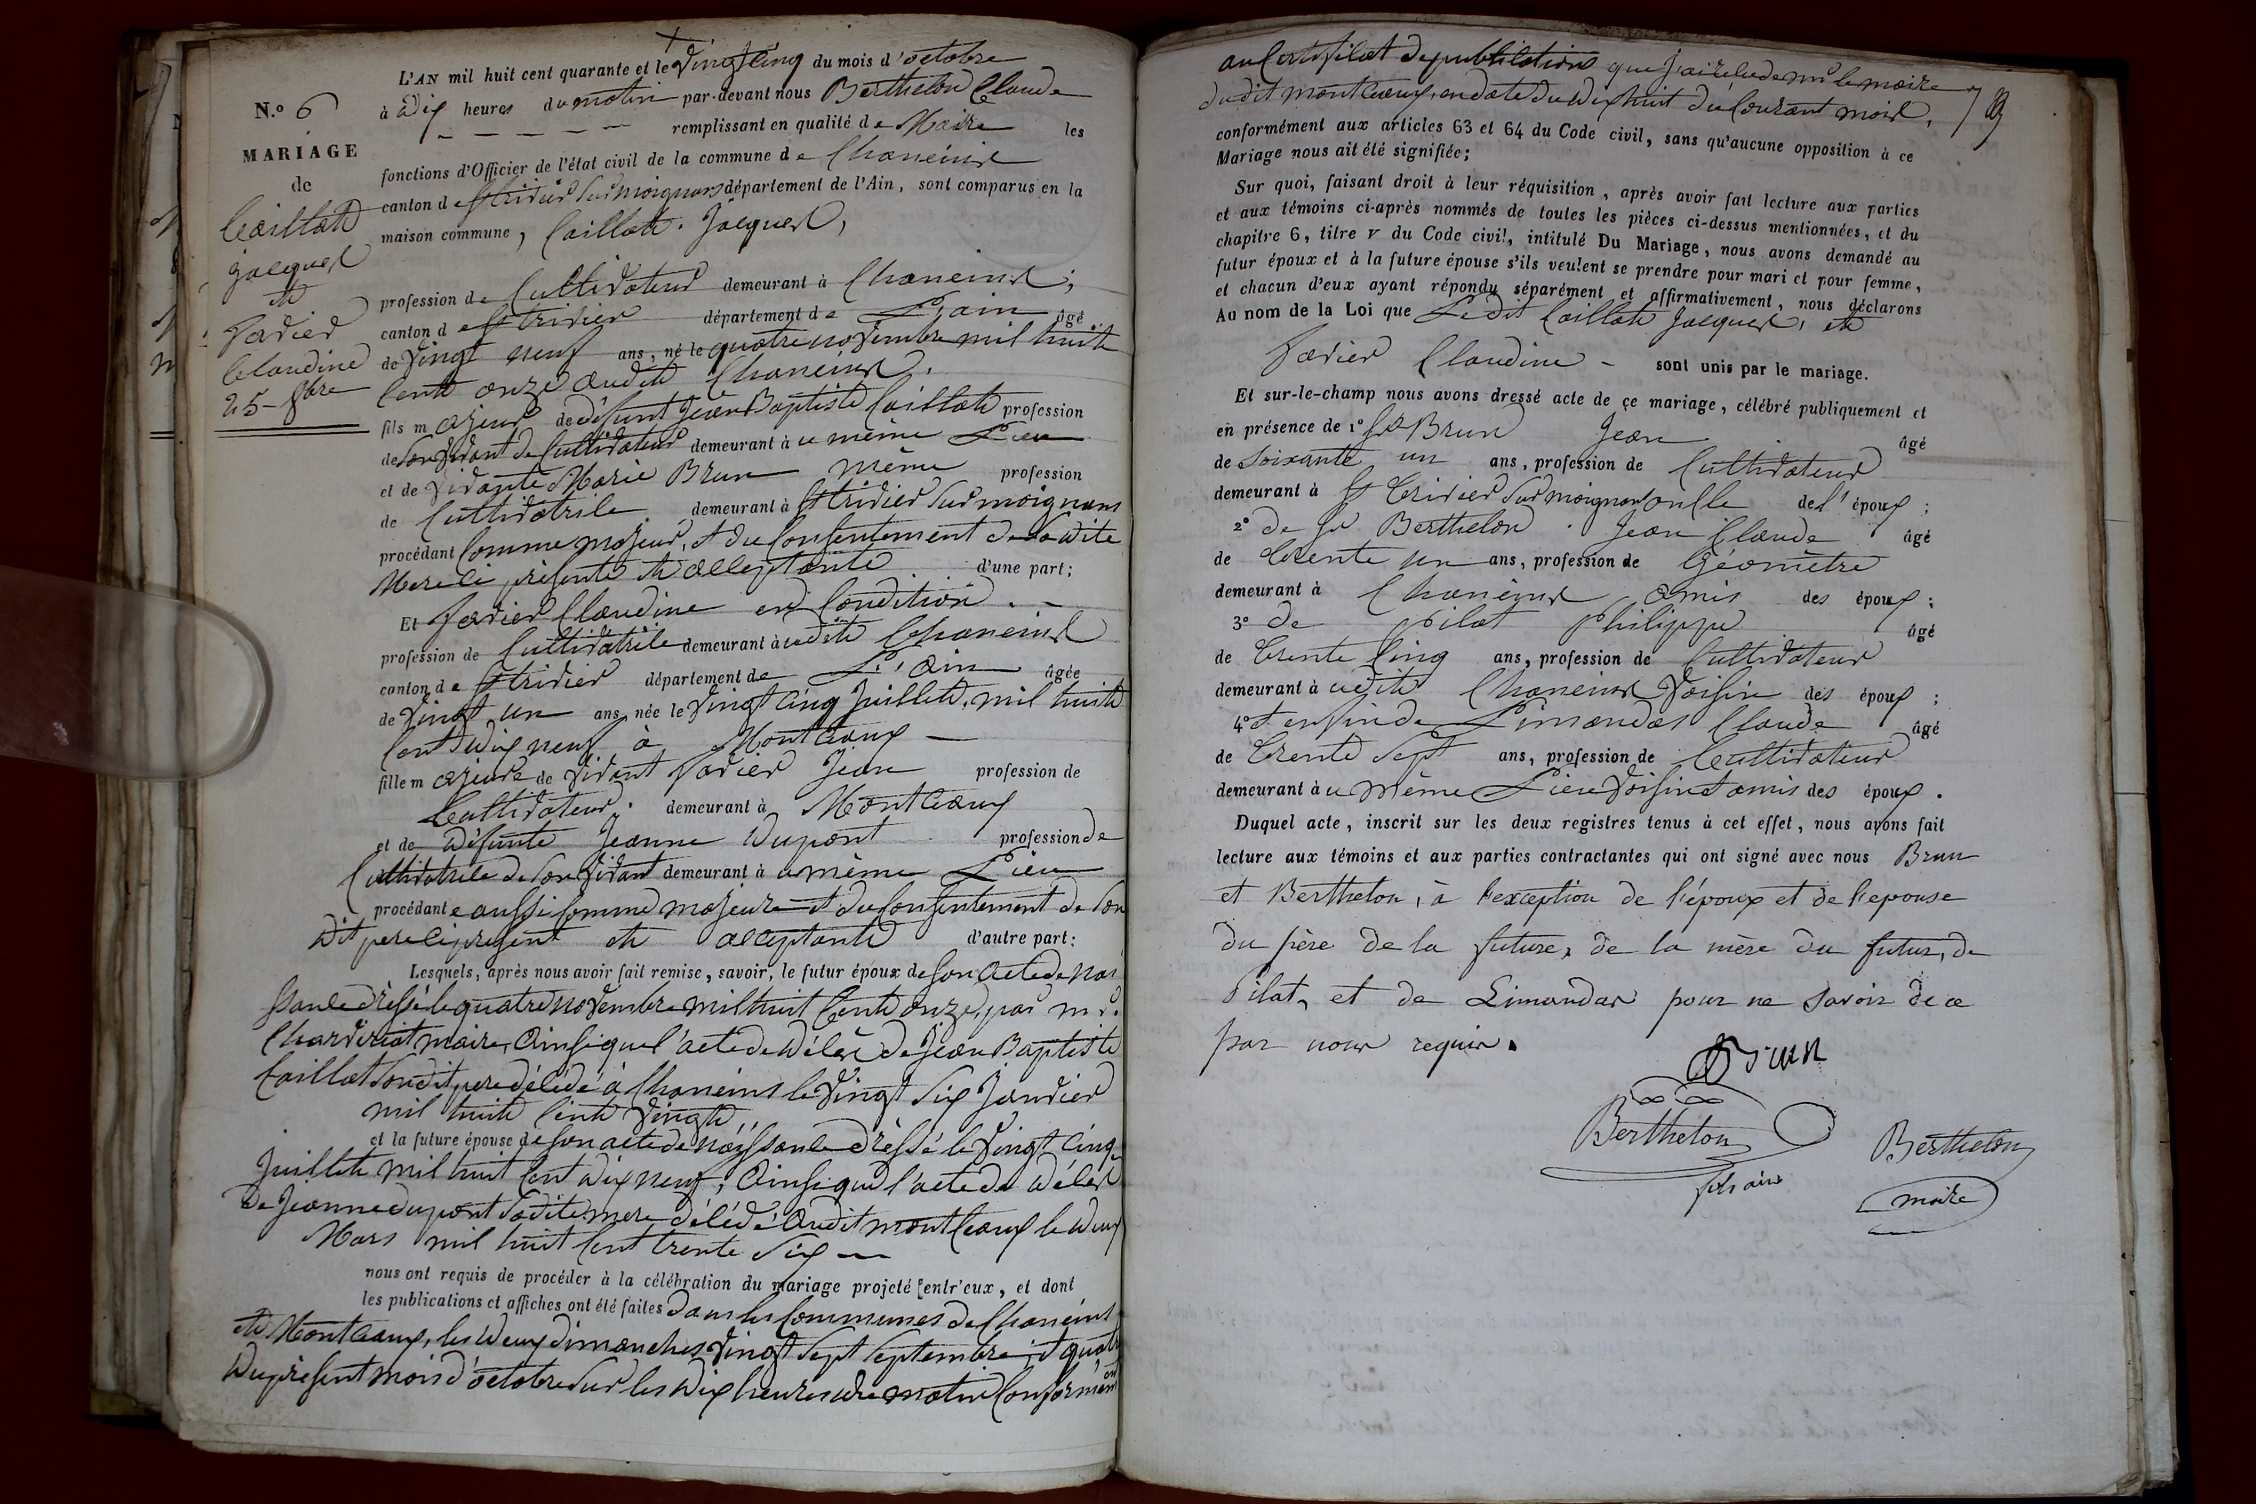 N.o 6
MARIAGE
de
Caillat
Jacques
et
Favier
Claudine
25 - 8bre
L'AN mil huit cent quarante et le vingt cinq du mois d'octobre
à dix heures du matin par-devant nous Berthelon Claude
remplissant en qualité de Maire les
fonctions d'Officier de l'état civil de la commune de Chaneins
canton de St trivier sur moignans département de l'Ain, sont comparus en la
maison commune, Caillat Jacques,
profession de Cultivateur demeurant à Chaneins;
canton de St trivier département de L'ain âgé
de vingt neuf ans, né le quatre novembre mil huit
Cent onze audit Chaneins.
fils majeur de défunt Jean Baptiste Caillat profession
de son vivant de Cultivateur demeurant à ce même Lieu
et de vivante Marie Brun même profession
de Cultivatrice demeurant à St trivier sur moignans
procédant Comme majeur, et du Consentement de sa dite
Mere ici présente et acceptante d'une part;
Et Favier Claudine en Condition. -
profession de Cultivatrice demeurant à udit Chaneins
canton de St trivier département de L'ain âgée
de vingt un ans, née le vingt cinq Juillet, mil huit
Cent dix neuf à Montceaux -
fille majeure de vivant Favier Jean profession de
Cultivateur. demeurant à Montceaux
et de défunte Jeanne Dupont profession de
Cultivatrice de son vivant demeurant à ce même Lieu
procédant e aussi Comme majeure et du Consentement de son
dit pere ici présent et acceptante d'autre part:
Lesquels, après nous avoir fait remise, savoir, le futur époux de son acte de nais
sance dréssé le quatre novembre mil huit Cent onze, par mr.
Chardiriat maire, ainsi que l'acte de décès de Jean Baptiste
Caillat son dit pere décédé à Chaneins le vingt six Janvier
mil huit Cent vingt
et la future épouse de son acte de naissance dréssé le vingt cinq
Juillet mil huit Cent dix neuf, ainsi que l'acte de décès
de Jeanne dupont sadite mere décédé audit montceaux le deux
Mars mil huit Cent trente six
nous ont requis de procéder à la célébration du mariage projeté entr'eux, et dont
les publications et affiches ont été faites dans les Communes de Chaneins
et Montceaux, les deux dimanches vingt sept septembre, et quatre
du présent mois d'octobre sur les dix heures du matin Conformément
au Certificat de publications que j'ai relu de mr le maire
dudit montceaux, en date du dix huit du Courant mois,
conformément aux articles 63 et 64 du Code civil, sans qu'aucune opposition à ce
Mariage nous ait été signifiée;
Sur quoi, faisant droit à leur réquisition, après avoir fait lecture aux parties
et aux témoins ci-après nommés de toutes les pièces ci-dessus mentionnées, et du
chapitre 6, titre v du Code civil, intitulé Du Mariage, nous avons demandé au
futur époux et à la future épouse s'ils veulent se prendre pour mari et pour femme,
et chacun d'eux ayant répondu séparément et affirmativement, nous déclarons
Au nom de la Loi que Ledit Caillat Jacques, et
Favier Claudine - sont unis par le mariage.
Et sur-le-champ nous avons dressé acte de ce mariage, célébré publiquement et
en présence de 1o Sr Brun Jean âgé
de Soixante un ans, profession de Cultivateur
demeurant à St trivier sur moignans oncle de l'époux;
2o de Sr Berthelon Jean Claude âgé
de trente un ans, profession de Géomètre
demeurant à Chaneins, amis des époux;
3o de Pilat Philippe âgé
de trente cinq ans, profession de Cultivateur
demeurant à udit Chaneins voisin des époux;
4o et enfin de Limandas Claude âgé
de trente sept ans, profession de Cultivateur
demeurant à ce même Lieu voisin et amis des époux.
Duquel acte, inscrit sur les deux registres tenus à cet effet, nous avons fait
lecture aux témoins et aux parties contractantes qui ont signé avec nous Brun
et Berthelon, à l'exception de l'époux et de l'epouse
du père de la future, de la mère du futur, de
Pilat, et de Limandas pour ne savoir de ce
par nous requis.
Brun
Berthelon
Berthelon
maire